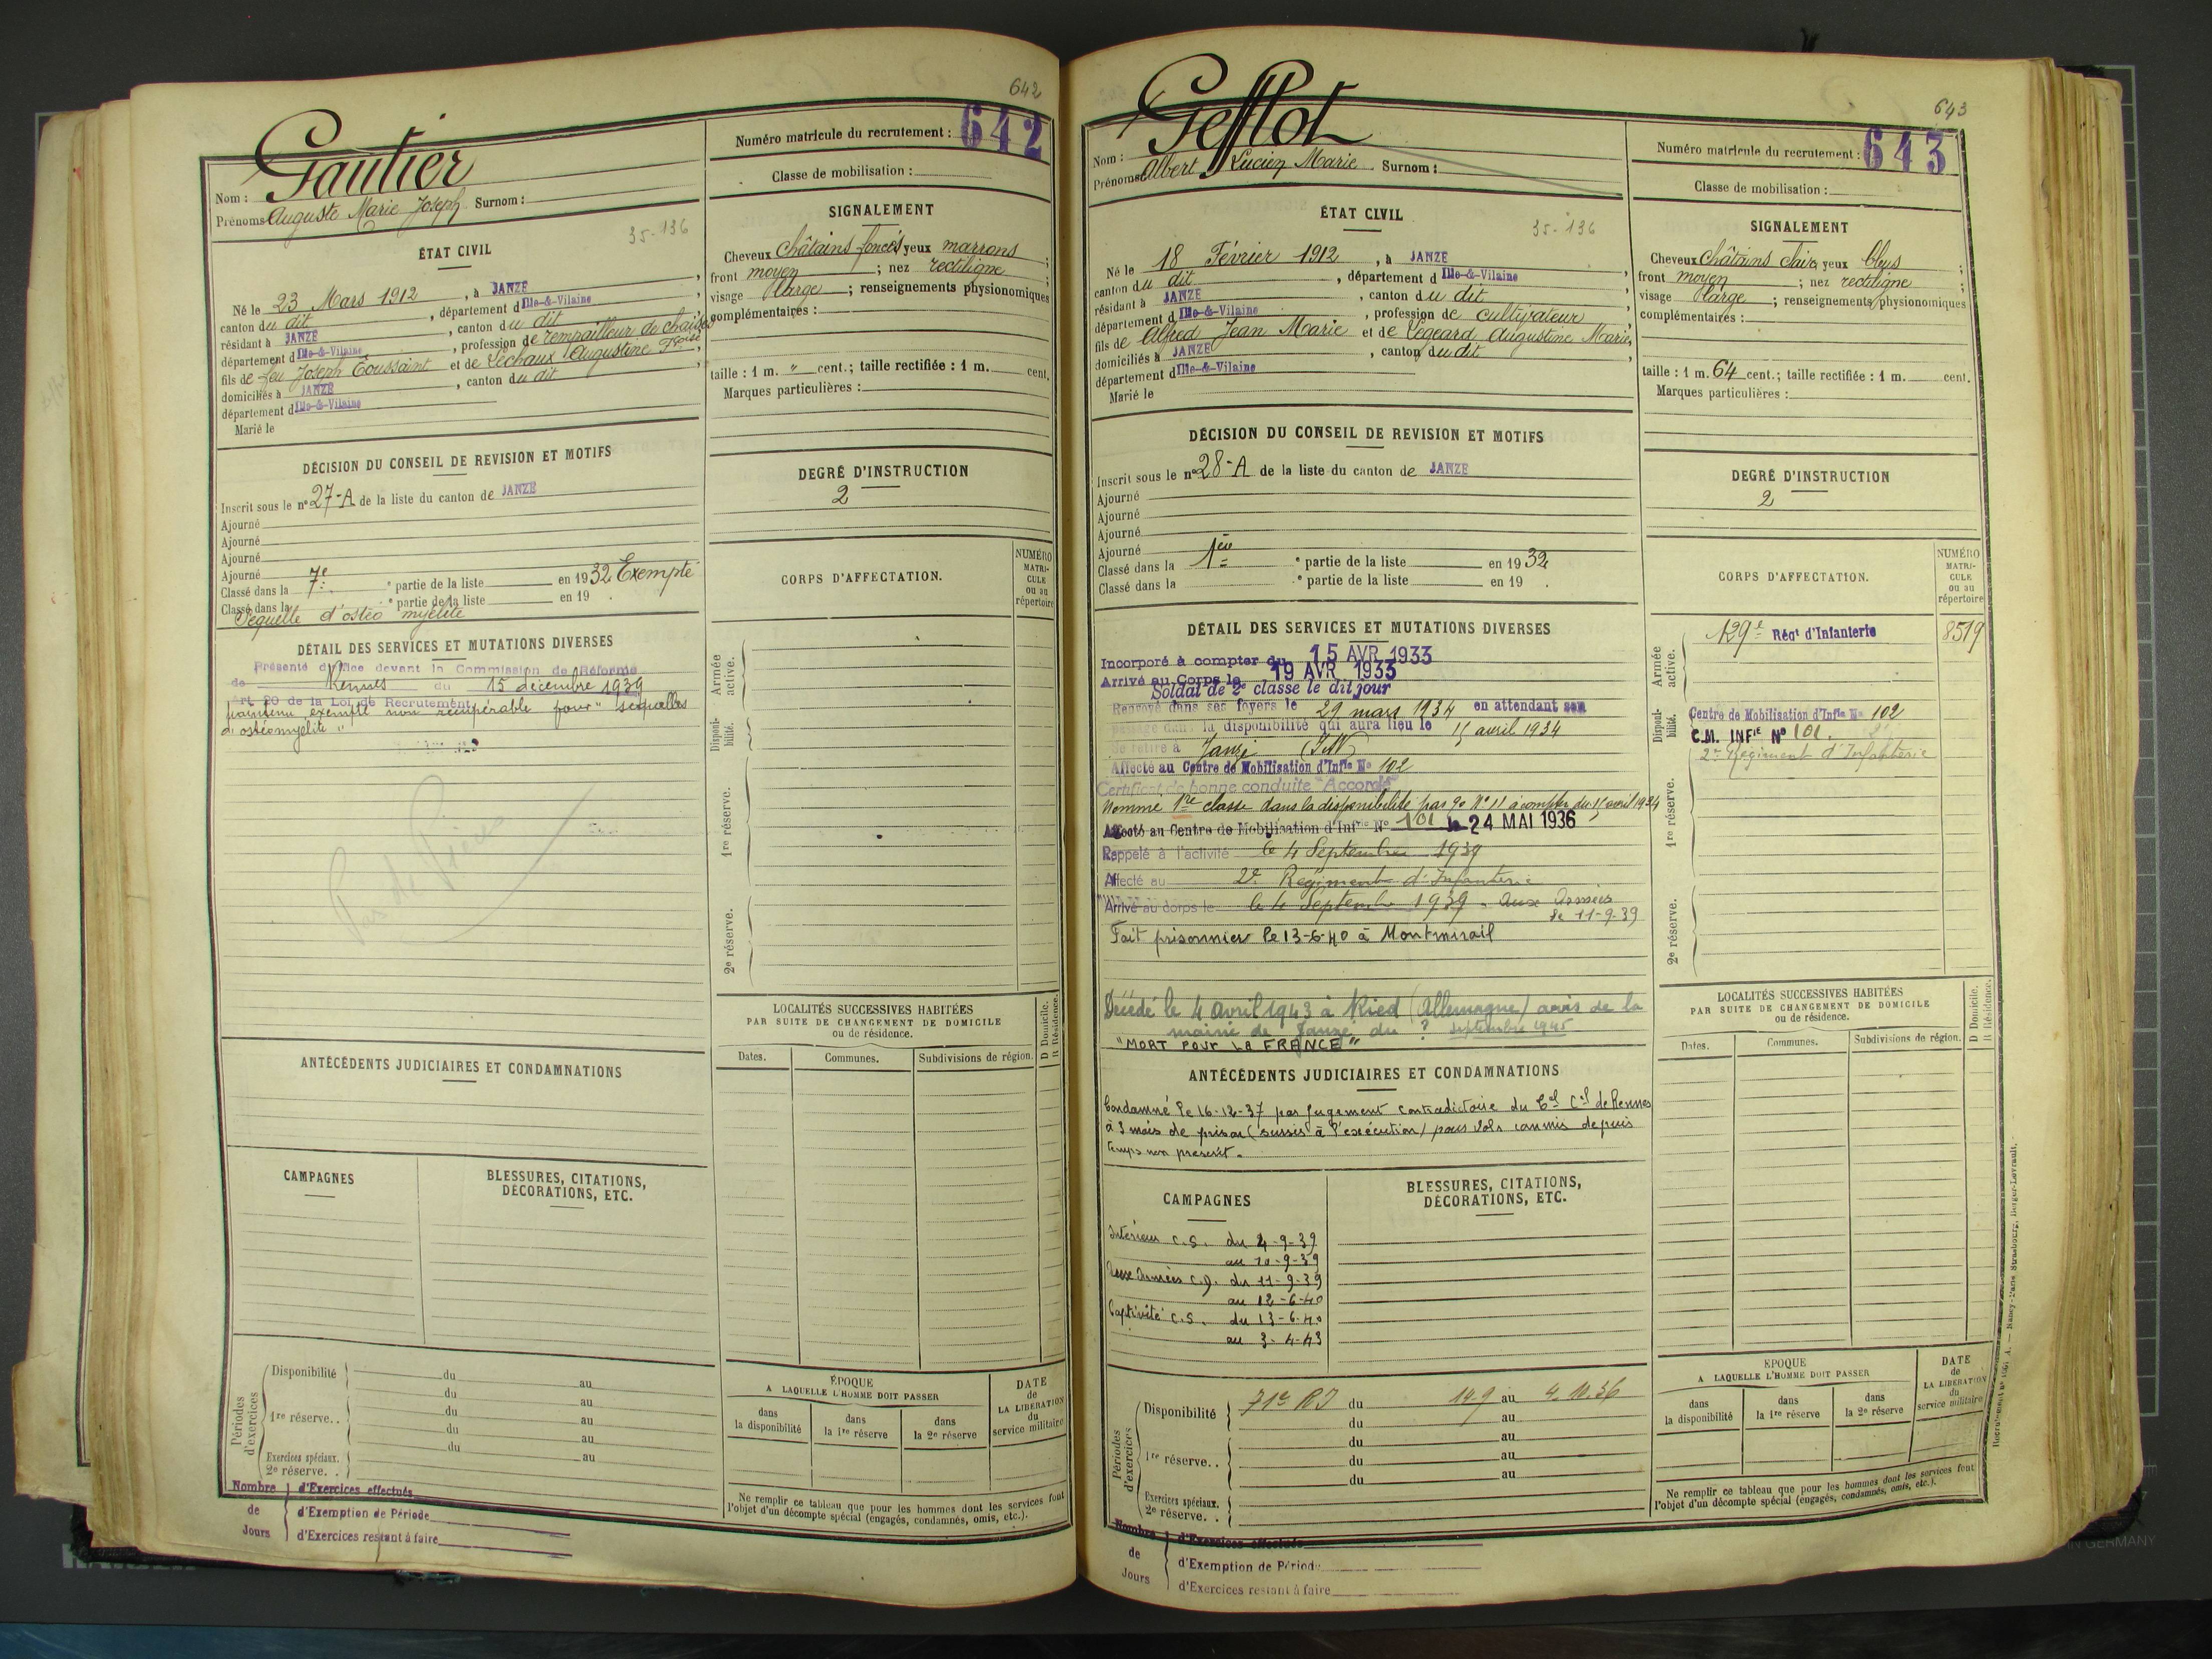 642
Gautier
Nom :
Prénoms : Auguste Marie Joseph Surnom :
Numéro matricule du recrutement : 642
Classe de mobilisation :
35-136
ÉTAT CIVIL
Né le 23 Mars 1912, à JANZÉ
canton du dit, département d Ille-&-Vilaine,
résidant à JANZÉ, canton du dit
département d Ille-&-Vilaine, profession de rempailleur de chaises
fils de feu Joseph Toussaint et de Léchaux Augustine Fçoise,
domiciliés à JANZÉ, canton du dit
département d Ille-&-Vilaine
Marié le
SIGNALEMENT
Cheveux châtains foncés yeux marrons ;
front moyen ; nez rectiligne ;
visage large ; renseignements physionomiques
complémentaires :
taille : 1 m. " cent.; taille rectifiée : 1 m. cent.
Marques particulières :
DÉCISION DU CONSEIL DE REVISION ET MOTIFS
Inscrit sous le n° 27-A de la liste du canton de JANZÉ
Ajourné
Ajourné
Ajourné
Ajourné
Classé dans la 7e partie de la liste en 1932 Exempté
Classé dans la e partie de la liste en 19 .
Séquelle d'ostéo myélite
DEGRÉ D'INSTRUCTION
2
CORPS D'AFFECTATION.
NUMÉRO MATRI-CULE ou au répertoire
DÉTAIL DES SERVICES ET MUTATIONS DIVERSES
Présenté d'office devant la Commission de Réforme
de Rennes du 15 décembre 1939
Art 20 de la Loi de Recrutement
maintenu exempté non récupérable pour "séquelles
d'ostéomyélite"
Pas de Pièces
Armée active.
Disponi-bilité.
1re réserve.
2e réserve.
LOCALITÉS SUCCESSIVES HABITÉES
PAR SUITE DE CHANGEMENT DE DOMICILE
ou de résidence.
D Domicile.
R Résidence.
Dates. Communes. Subdivisions de région.
ANTÉCÉDENTS JUDICIAIRES ET CONDAMNATIONS
CAMPAGNES
BLESSURES, CITATIONS,
DÉCORATIONS, ETC.
Périodes d'exercices
Disponibilité du au
du au
1re réserve.. du au
du au
du au
Exercices spéciaux.
2e réserve. .
ÉPOQUE
A LAQUELLE L'HOMME DOIT PASSER
dans la disponibilité
dans la 1re réserve
dans la 2e réserve
DATE de LA LIBÉRATION du service militaire
Ne remplir ce tableau que pour les hommes dont les services font
l'objet d'un décompte spécial (engagés, condamnés, omis, etc.).
Nombre d'Exercices effectués
de d'Exemption de Période
Jours d'Exercices restant à faire
643
Gefflot
Nom :
Prénoms : Albert Lucien Marie Surnom :
Numéro matricule du recrutement : 643
Classe de mobilisation :
35-136
ÉTAT CIVIL
Né le 18 Février 1912, à JANZÉ
canton du dit, département d Ille-&-Vilaine,
résidant à JANZÉ, canton du dit
département d Ille-&-Vilaine, profession de cultivateur,
fils de Alfred Jean Marie et de Legeard Augustine Marie,
domiciliés à JANZÉ, canton du dit,
département d Ille-&-Vilaine
Marié le
SIGNALEMENT
Cheveux châtains clairs yeux bleus ;
front moyen ; nez rectiligne ;
visage large ; renseignements physionomiques
complémentaires :
taille : 1 m. 64 cent.; taille rectifiée : 1 m. cent.
Marques particulières :
DÉCISION DU CONSEIL DE REVISION ET MOTIFS
Inscrit sous le n° 28-A de la liste du canton de JANZÉ
Ajourné
Ajourné
Ajourné
Ajourné
Classé dans la 1ère partie de la liste en 1932
Classé dans la e partie de la liste en 19 .
DEGRÉ D'INSTRUCTION
2
CORPS D'AFFECTATION.
NUMÉRO MATRI-CULE ou au répertoire
DÉTAIL DES SERVICES ET MUTATIONS DIVERSES
Incorporé à compter du 15 AVR 1933
Arrivé au Corps le 19 AVR 1933
Soldat de 2e classe le dit jour
Renvoyé dans ses foyers le 29 mars 1934 en attendant son
passage dans la disponibilité qui aura lieu le 15 avril 1934
Se retire à Janzé (I&V)
Affecté au Centre de Mobilisation d'Infie No 102
Certificat de bonne conduite "Accordé"
Nommé 1re classe dans la disponibilité par Go No 11 à compter du 15 avril 1934
Affecté au Centre de Mobilisation d'Infie No 101 le 24 MAI 1936
Rappelé à l'activité le 4 Septembre 1939
Affecté au 2e Régiment d'Infanterie
Arrivé au corps le le 4 Septembre 1939 - Aux Armées
le 11-9-39
Fait prisonnier le 13-6-40 à Montmirail
Décédé le 4 Avril 1943 à Ried (Allemagne) avis de la
mairie de Janzé du ? septembre 1945
"MORT POUR LA FRANCE"
Armée active.
129e Régt d'Infanterie 8519
Disponi-bilité.
Centre de Mobilisation d'Infie No 102
C.M. INFIE No 101.
2e Régiment d'Infanterie
1re réserve.
2e réserve.
LOCALITÉS SUCCESSIVES HABITÉES
PAR SUITE DE CHANGEMENT DE DOMICILE
ou de résidence.
D Domicile.
R Résidence.
Dates. Communes. Subdivisions de région.
ANTÉCÉDENTS JUDICIAIRES ET CONDAMNATIONS
Condamné le 16-12-37 par jugement contradictoire du Tal Cel de Rennes
à 3 mois de prison (sursis à l'exécution) pour vols commis depuis
temps non prescrit.
CAMPAGNES
Intérieur C.S. du 4-9-39
au 10-9-39
Aux Armées C.D. du 11-9-39
au 12-6-40
Captivité C.S. du 13-6-40
au 3-4-43
BLESSURES, CITATIONS,
DÉCORATIONS, ETC.
Périodes d'exercices
Disponibilité 71e RI du 14.9 au 4.10.36
du au
1re réserve.. du au
du au
du au
Exercices spéciaux.
2e réserve. .
ÉPOQUE
A LAQUELLE L'HOMME DOIT PASSER
dans la disponibilité
dans la 1re réserve
dans la 2e réserve
DATE de LA LIBÉRATION du service militaire
Ne remplir ce tableau que pour les hommes dont les services font
l'objet d'un décompte spécial (engagés, condamnés, omis, etc.).
Nombre d'Exercices effectués
de d'Exemption de Période
Jours d'Exercices restant à faire
Nancy-Paris-Strasbourg, Berger-Levrault.
IN GERMANY